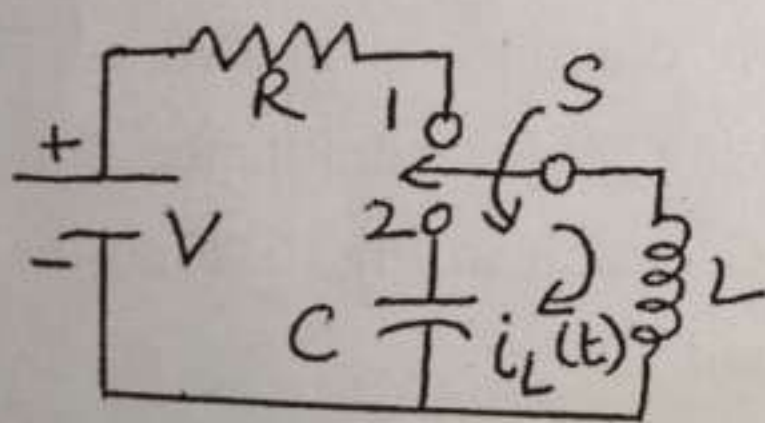 R
1
S
+
V
-
2
C
i_L(t)
L